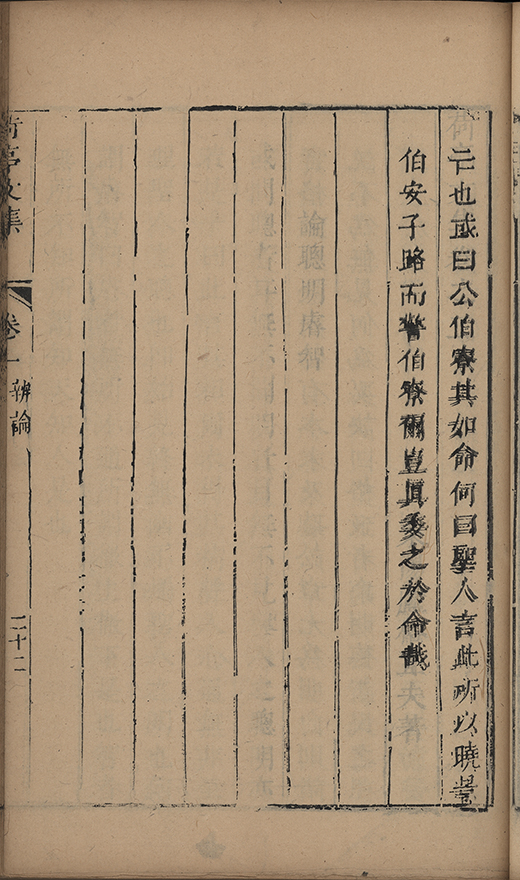 云也或曰公伯寮其如命何曰聖人言此所以曉景
伯安子路而警伯寮爾豈眞委之於命哉
荷亭文集 卷一 辨論 二十二